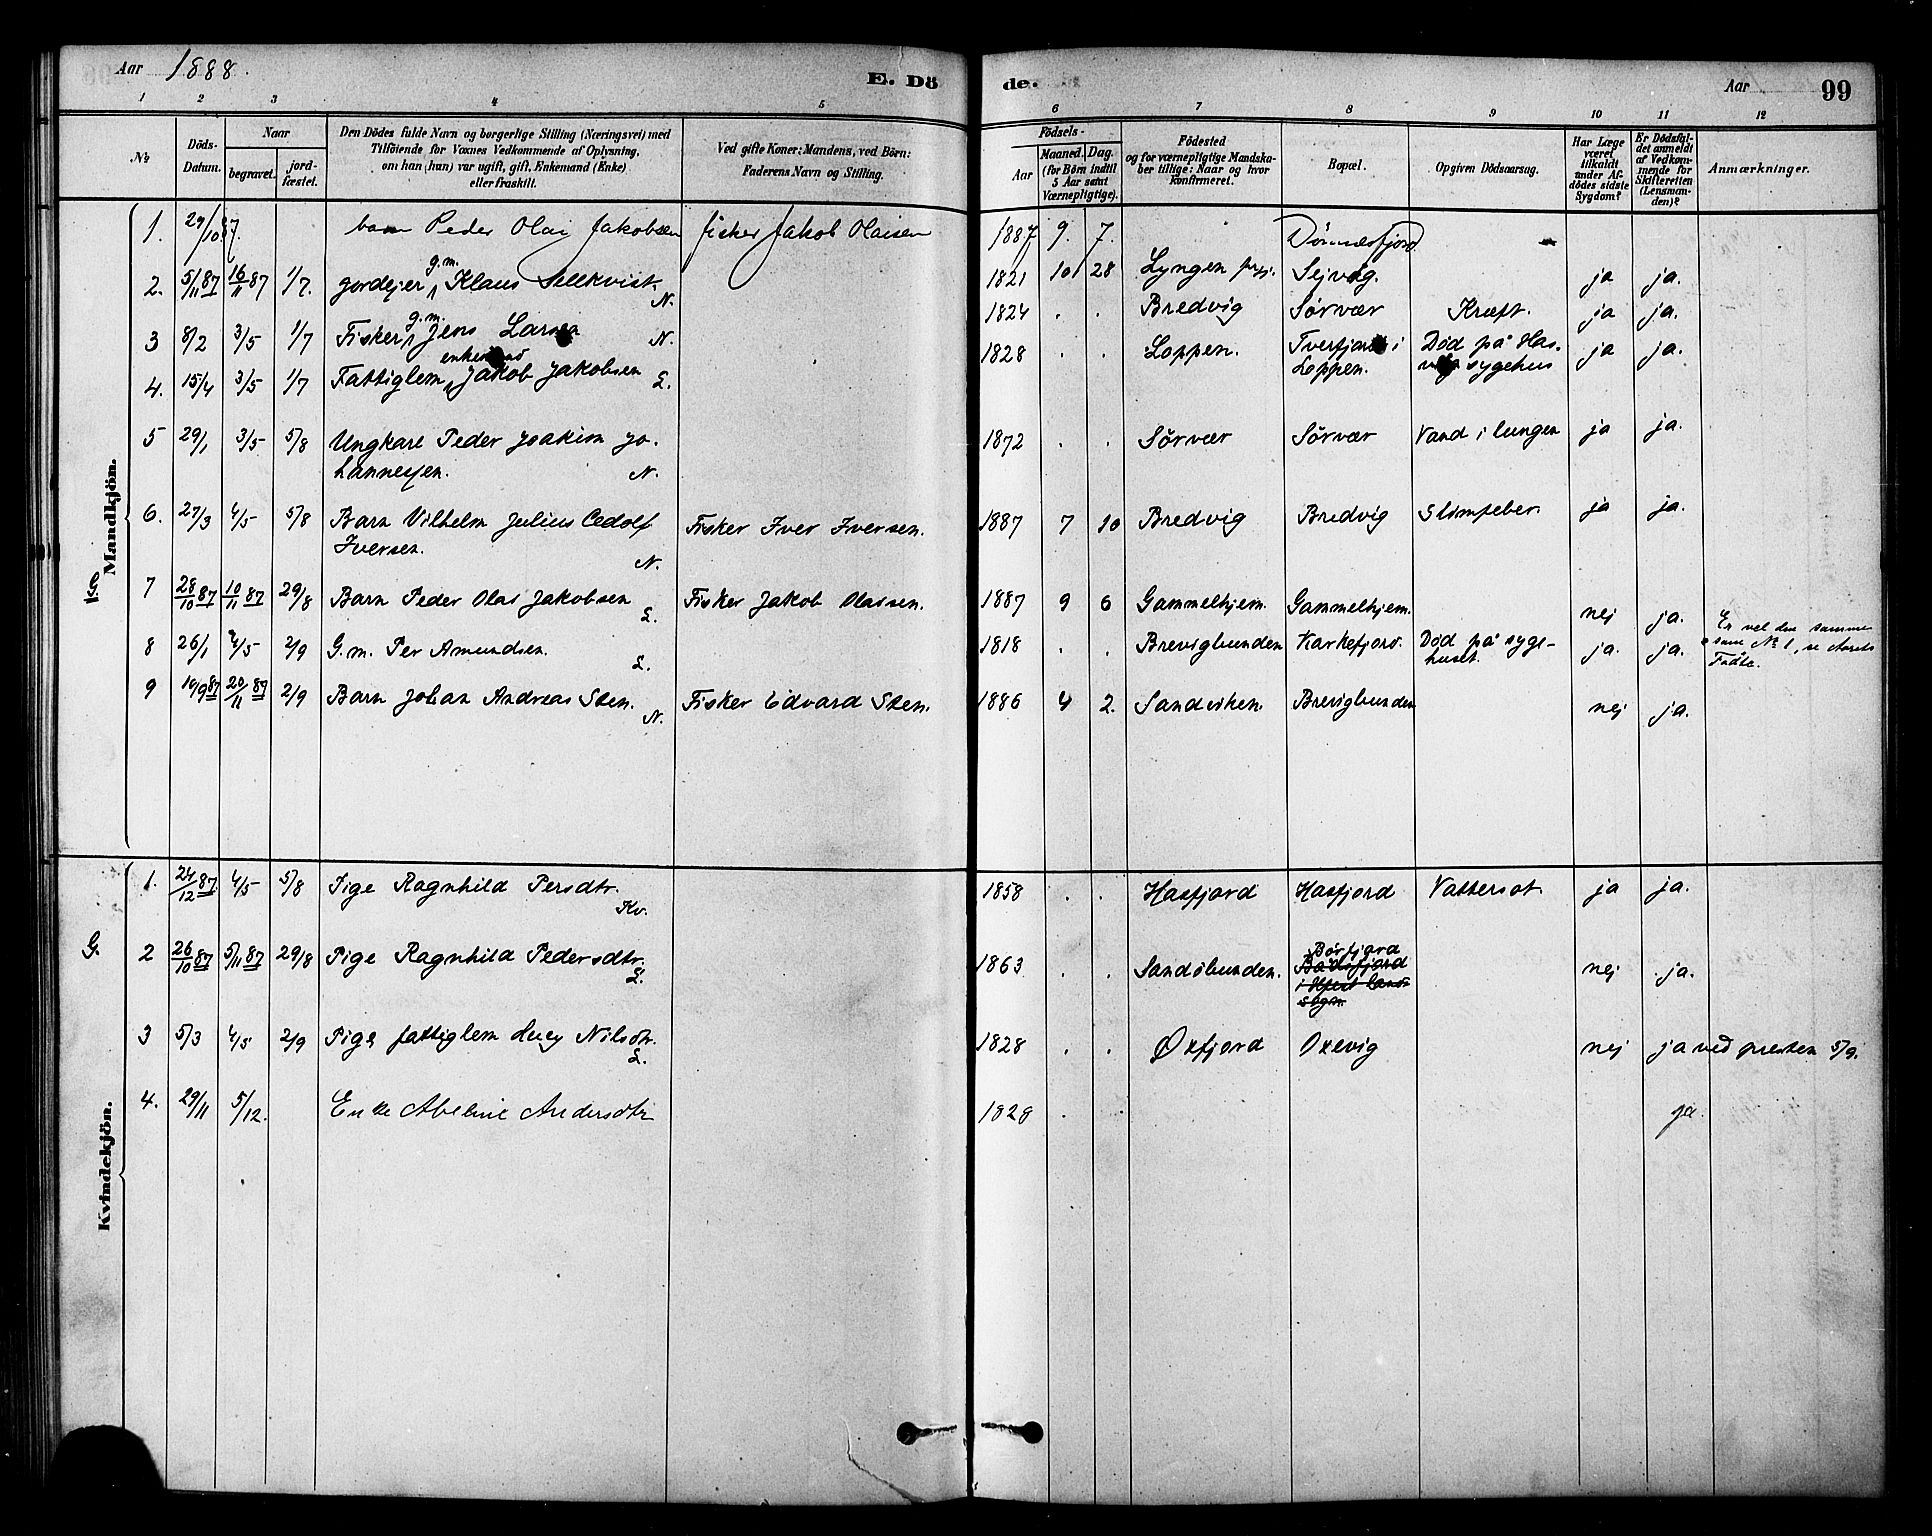 Aar 1888.
E. Dö
de.
Aar
99
1 2 3 4 5 6 7 8 9 10 11 12
№
Döds-Datum.
Naar
begravet.
jord-fæstet.
Den Dödes fulde Navn og borgerlige Stilling (Næringsvei) med
Tilföiende for Voxnes Vedkommende af Oplysning,
om han (hun) var ugift, gift, Enkemand (Enke)
eller fraskilt.
Ved gifte Koner: Mandens, ved Börn:
Faderens Navn og Stilling.
Födsels-
Aar
Maaned. Dag.
(for Börn indtil
5 Aar samt
Værnepligtige).
Födested
og for værnepligtige Mandska-
ber tillige: Naar og hvor
konfirmeret.
Bopæl.
Opgiven Dödsaarsag.
Har Læge
været
tilkaldt
under Af-
dödes sidste
Sygdom?
Er Dödsfal-
det anmeldt
af Vedkom-
mende for
Skifteretten
(Lensman-
den)?
Anmærkninger.
Mandkjön.
1. 29/10 87. barn Peder Olai Jakobsen fisker Jakob Olaisen 1887 9. 7. Dönnesfjord
2. 5/11 87 16/11 87 1/7. gordejer g.m. Klaus Sellkvist. N. 1821 10 28 Lyngen Sejvåg. ja ja.
3 8/2 3/5 1/7 Fisker g.m. Jens Larsen N. 1824 . . Bredvig Sørvær Kræft. ja ja.
4. 15/4 3/5 1/7 Fattiglem enkemand Jakob Jakobsen L. 1828 . . Loppen. Tverfjord i Loppen. Død på Has-vig sygehus ja ja.
5 29/1 3/5 5/8 Ungkarl Peder Joakim Jo-
hannesen. N. 1872 . . Sørvær Sørvær Vand i lungen ja ja.
6. 27/3 4/5 5/8 Barn Vilhelm Julius Cedolf
Iversen. N. Fisker Iver Iversen. 1887 7 10 Bredvig Bredvig Slimfeber. ja ja.
7 28/10 87 10/11 87 29/8 Barn Peder Olai Jakobsen L. Fisker Jakob Olaisen. 1887 9 6 Gammelhjem. Gammelhjem. nej ja. Er vel den samme
som № 1, se Aarets
8 26/1 4/5 2/9 G.m. Per Amundsen. L. 1818 . . Brevigbunden Karkefjord. Død på syge-
huset. ja. ja.
9 19/9 87 20/11 87 2/9 Barn Johan Andreas Sten. N. Fisker Edvard Sten. 1886 4 2. Sandviken Brevigbunden nej ja.
Kvindekjön.
G.
1. 24/12 87 4/5 5/8 Pige Ragnhild Persdtr. Kv. 1858 . . Hasfjord Hasfjord Vattersot. ja ja.
2 26/10 87 5/11 87 29/8 Pige Ragnhild Pedersdtr. L. 1863 . . Sandøbunden. Børfjord
Bådsfjord
i Hfest land-
sogn nej ja.
3 5/3 4/5 2/9 Pige fattiglem Lucy Nilsdtr. L. 1828 . . Øxfjord Oxevig nej ja ved presten 5/9.
4. 29/11 5/12. Enke Abeline Andersdtr 1828 . ja.